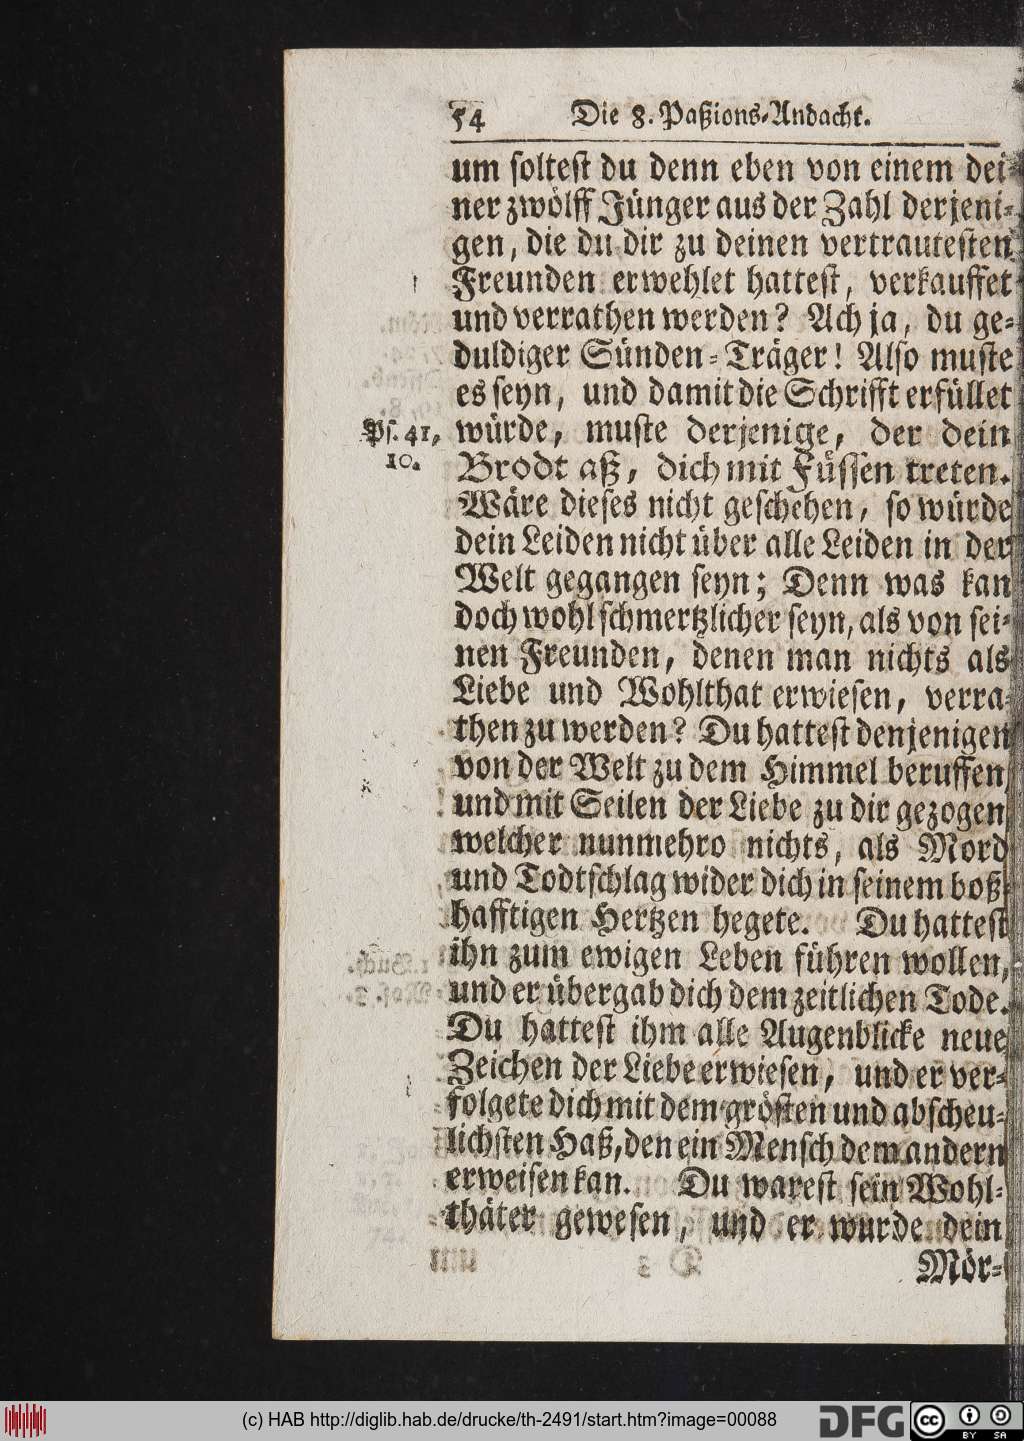 54 Die 8. Paßions-Andacht.
um soltest du denn eben von einem dei-
ner zwölff Jünger aus der Zahl derjeni-
gen, die du dir zu deinen vertrautesten
Freunden erwehlet hattest, verkauffet
und verrathen werden? Ach ja, du ge-
duldiger Sünden-Träger! Also muste
es seyn, und damit die Schrifft erfüllet
Ps. 41, würde, muste derjenige, der dein
10. Brodt aß, dich mit Füssen treten.
Wäre dieses nicht geschehen, so würde
dein Leiden nicht über alle Leiden in der
Welt gegangen seyn; Denn was kan
doch wohl schmertzlicher seyn, als von sei-
nen Freunden, denen man nichts als
Liebe und Wohlthat erwiesen, verra-
then zu werden? Du hattest denjenigen
von der Welt zu dem Himmel beruffen,
und mit Seilen der Liebe zu dir gezogen,
welcher nunmehro nichts, als Mord
und Todtschlag wider dich in seinem boß-
hafftigen Hertzen hegete. Du hattest
ihn zum ewigen Leben führen wollen,
und er übergab dich dem zeitlichen Tode.
Du hattest ihm alle Augenblicke neue
Zeichen der Liebe erwiesen, und er ver-
folgete dich mit dem grösten und abscheu-
lichsten Haß, den ein Mensch dem andern
erweisen kan. Du warest sein Wohl-
thäter gewesen, und er wurde dein
Mör-
(c) HAB http://diglib.hab.de/drucke/th-2491/start.htm?image=00088
DFG
cc BY SA